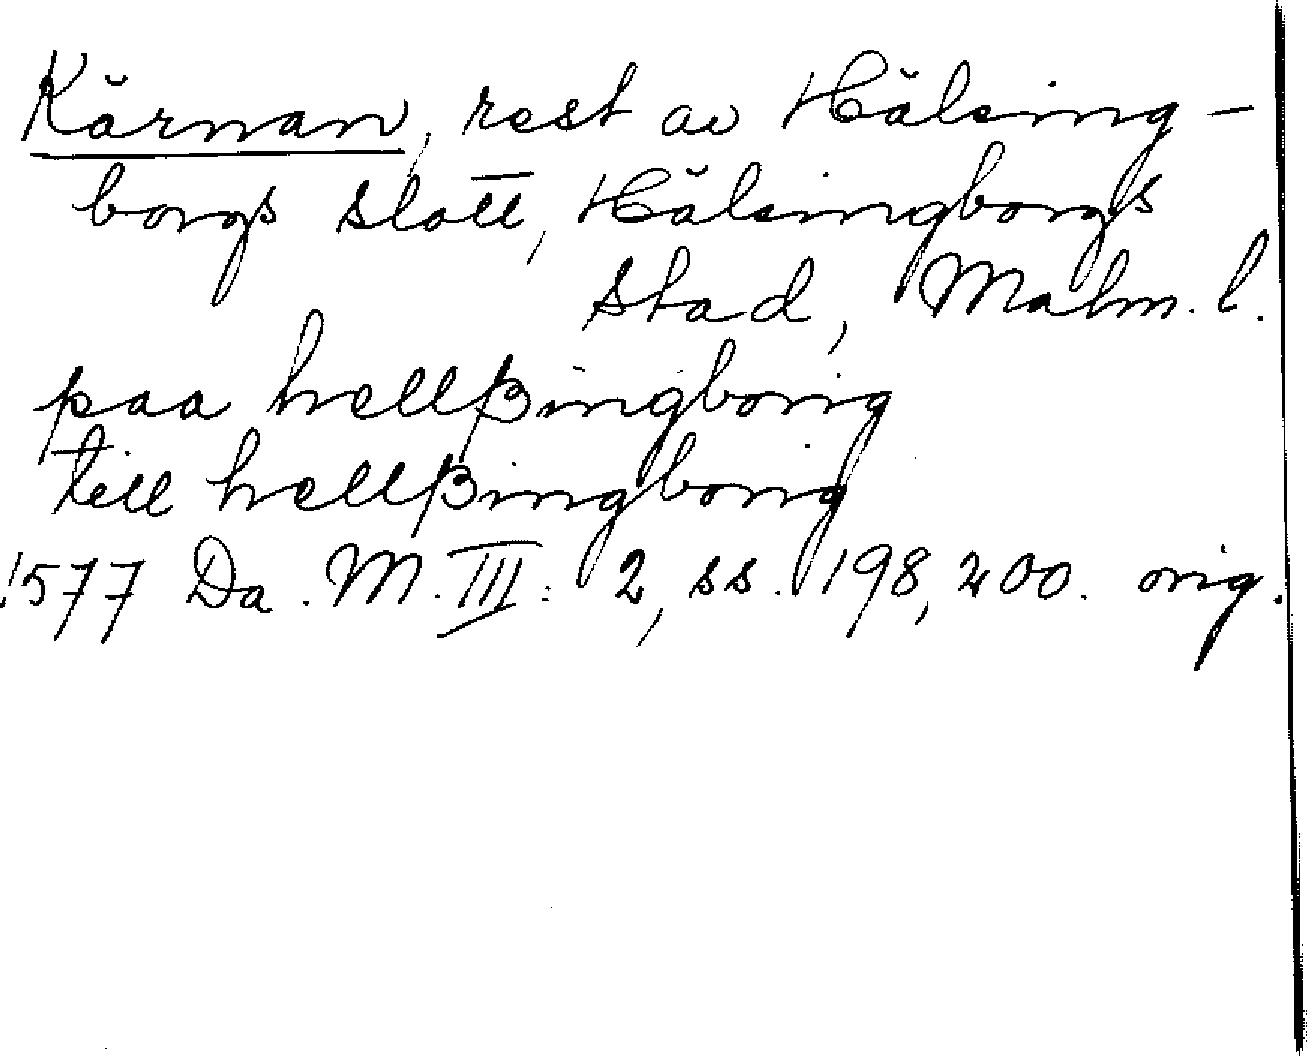 Kärnan, rest av Hälsing-
borgs slott, Hälsingborgs
stad, Malm. l.
paa hellßingborig
till hellßingborig
1577 Da. M. III: 2, ss. 198, 200. orig.